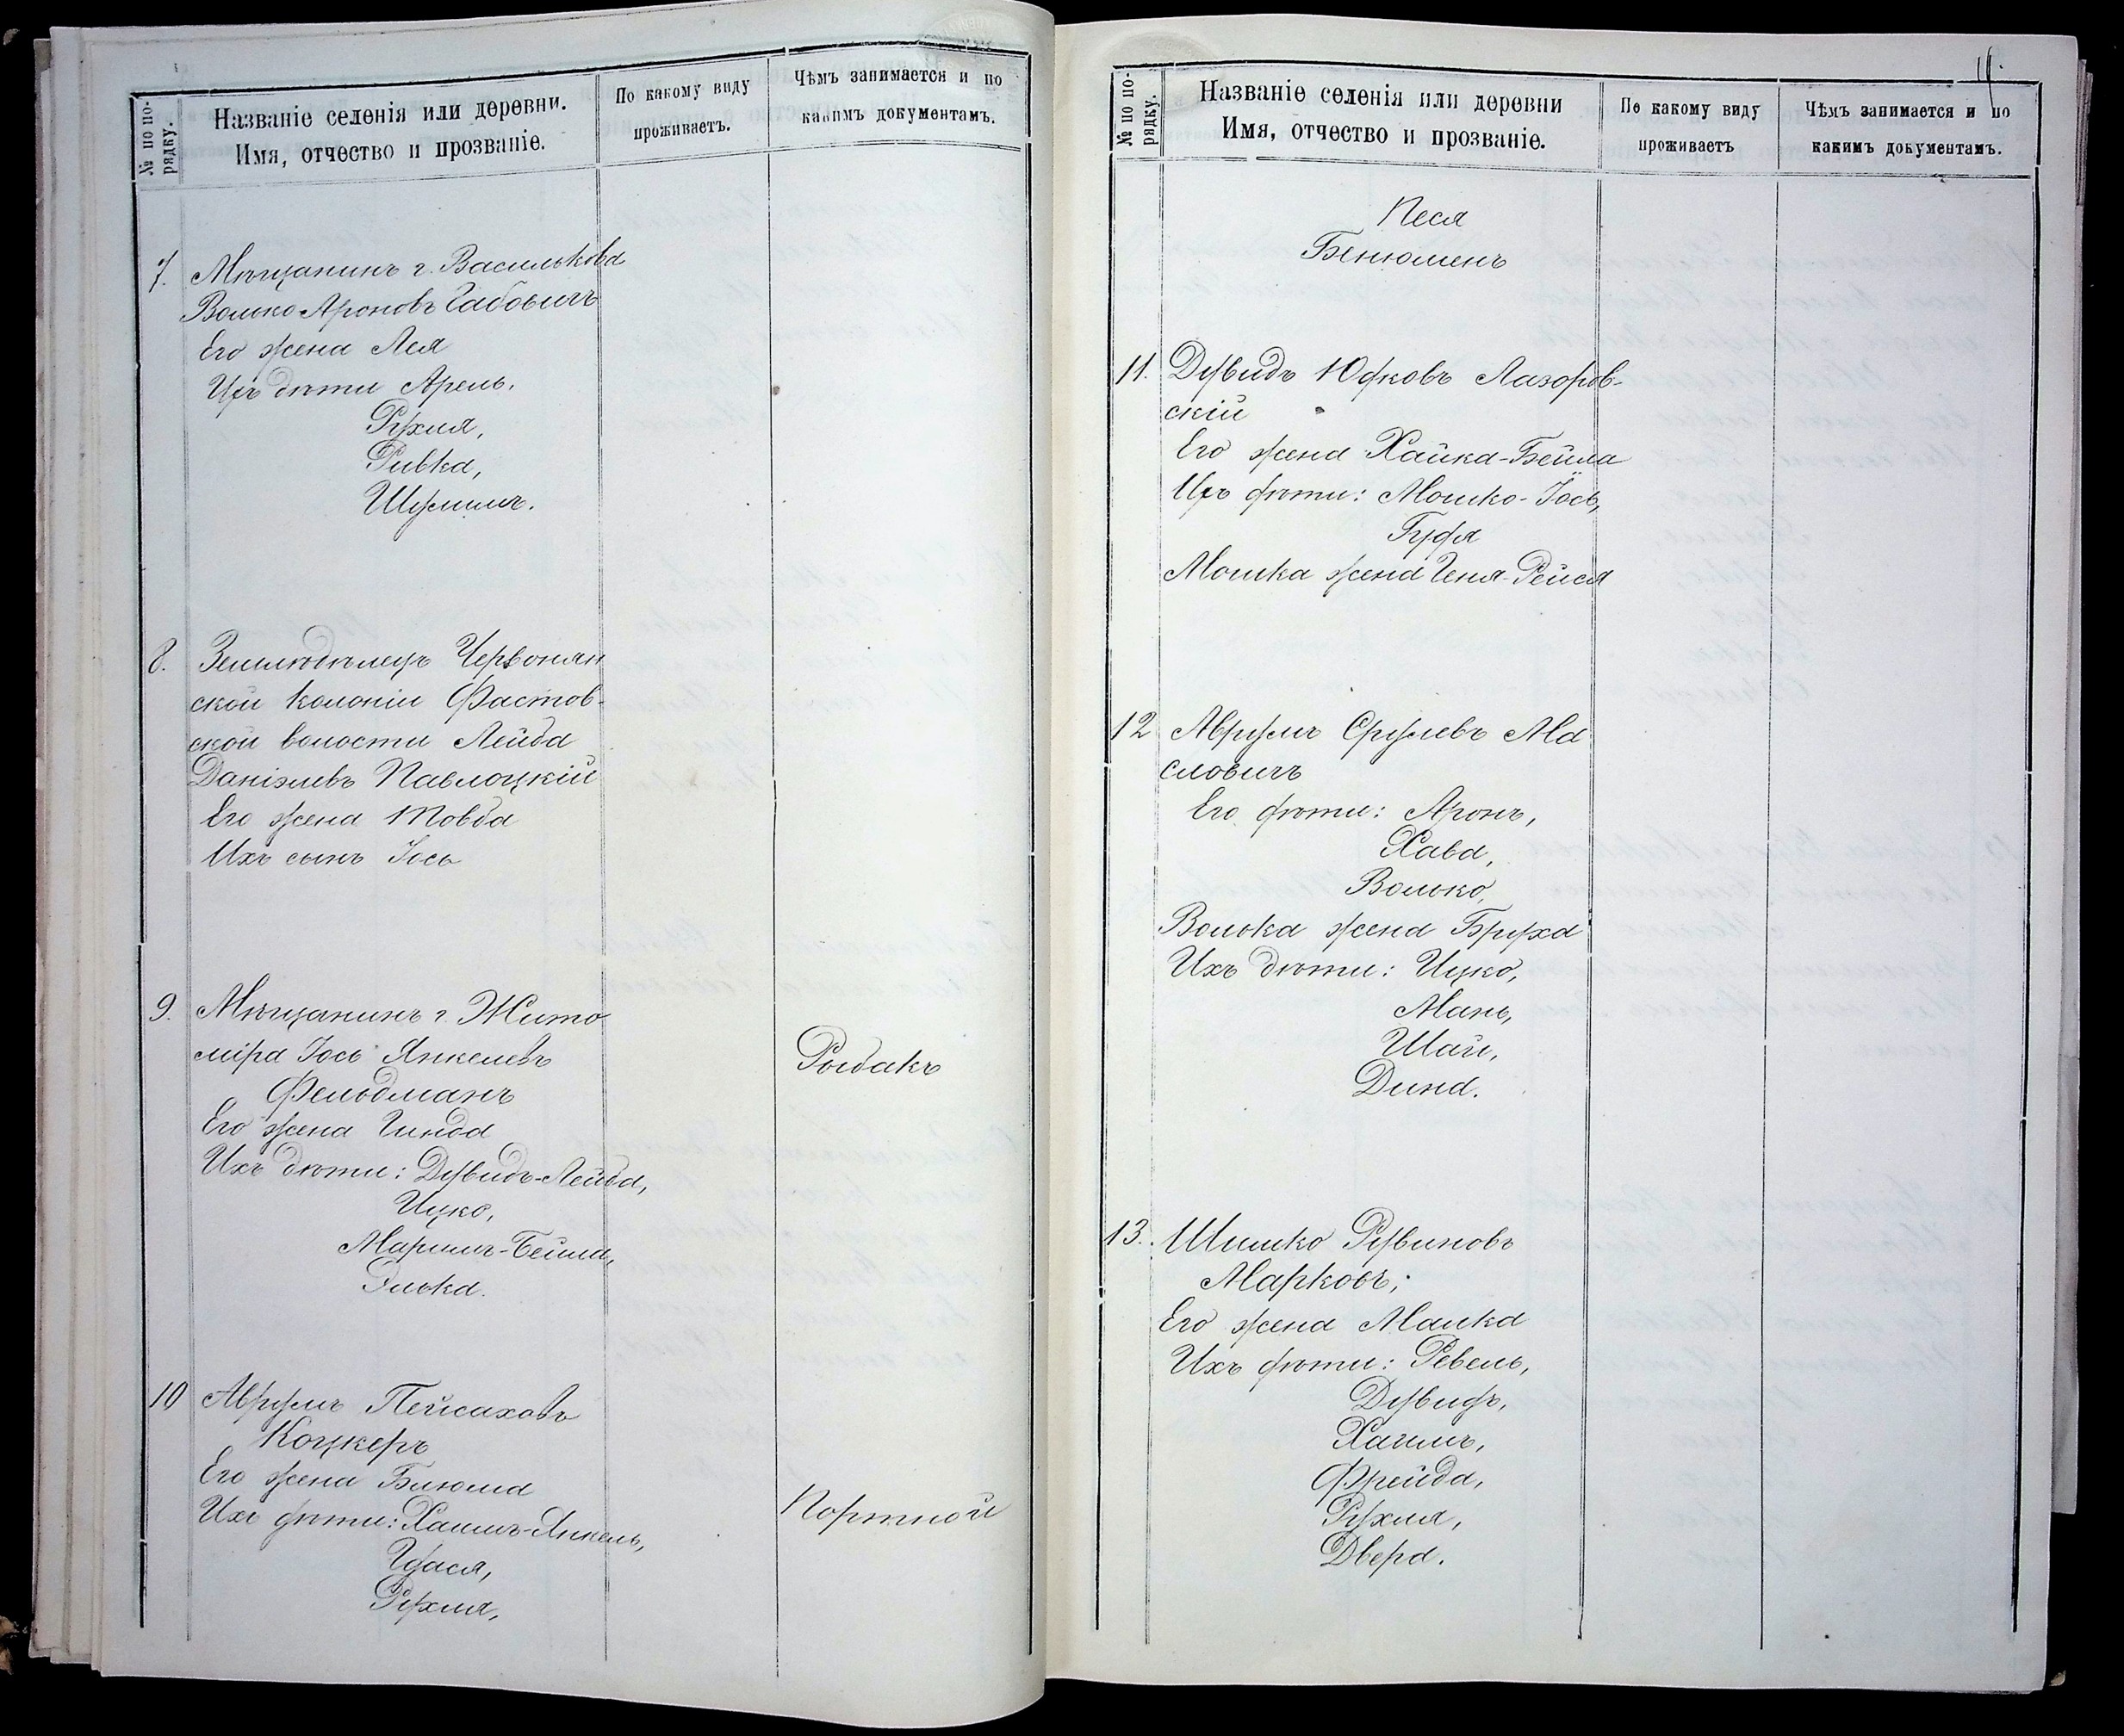 № по по-
рядку.
Названіе селенія или деревни.
Имя, отчество и прозваніе.
По какому виду
проживаетъ.
Чѣмъ занимается и по
какимъ документамъ.
7. Мѣщанинъ г. Василькова
Волько Ароновъ Габовичъ
Его жена Лея
Ихъ дѣти Арель.
Рухля,
Ривка,
Шулимъ.
8. Земледѣлецъ Червонян
ской колоніи Фастов-
ской волости Лейба
Даніэлевъ Павлоцкій
Его жена Товба
Ихъ сынъ Іось
9. Мѣщанинъ г. Жито
міра Іось Янкелевъ
Фельдманъ
Рыбакъ
Его жена Гинда
Ихъ дѣти: Дувидъ-Лейба,
Ицко,
Маримъ-Бейла,
Элька.
10 Аврумъ Пейсаховъ
Коцкеръ
Его жена Блюма
Ихъ дѣти: Хаимъ-Янкель,
Портной
Удася,
Рухля,
19.
№ по по-
рядку.
Названіе селенія или деревни
Имя, отчество и прозваніе.
По какому виду
проживаетъ
Чѣмъ занимается и по
какимъ документамъ.
Песя
Бенюменъ
11. Дувидъ Юдковъ Лазоров-
скій
Его жена Хайка-Бейла
Ихъ дѣти: Мошко-Іось,
Гудя
Мошка жена Геня-Рейся
12 Аврумъ Срулевъ Ма
словичъ
Его дѣти: Аронъ,
Хава,
Волько,
Волька жена Бруха
Ихъ дѣти: Ицко,
Мань,
Шая,
Дина.
13. Шимко Рувиновъ
Марковъ;
Его жена Малка
Ихъ дѣти: Ревель,
Дувидъ,
Хаимъ,
Фрейда,
Рухля,
Двера.